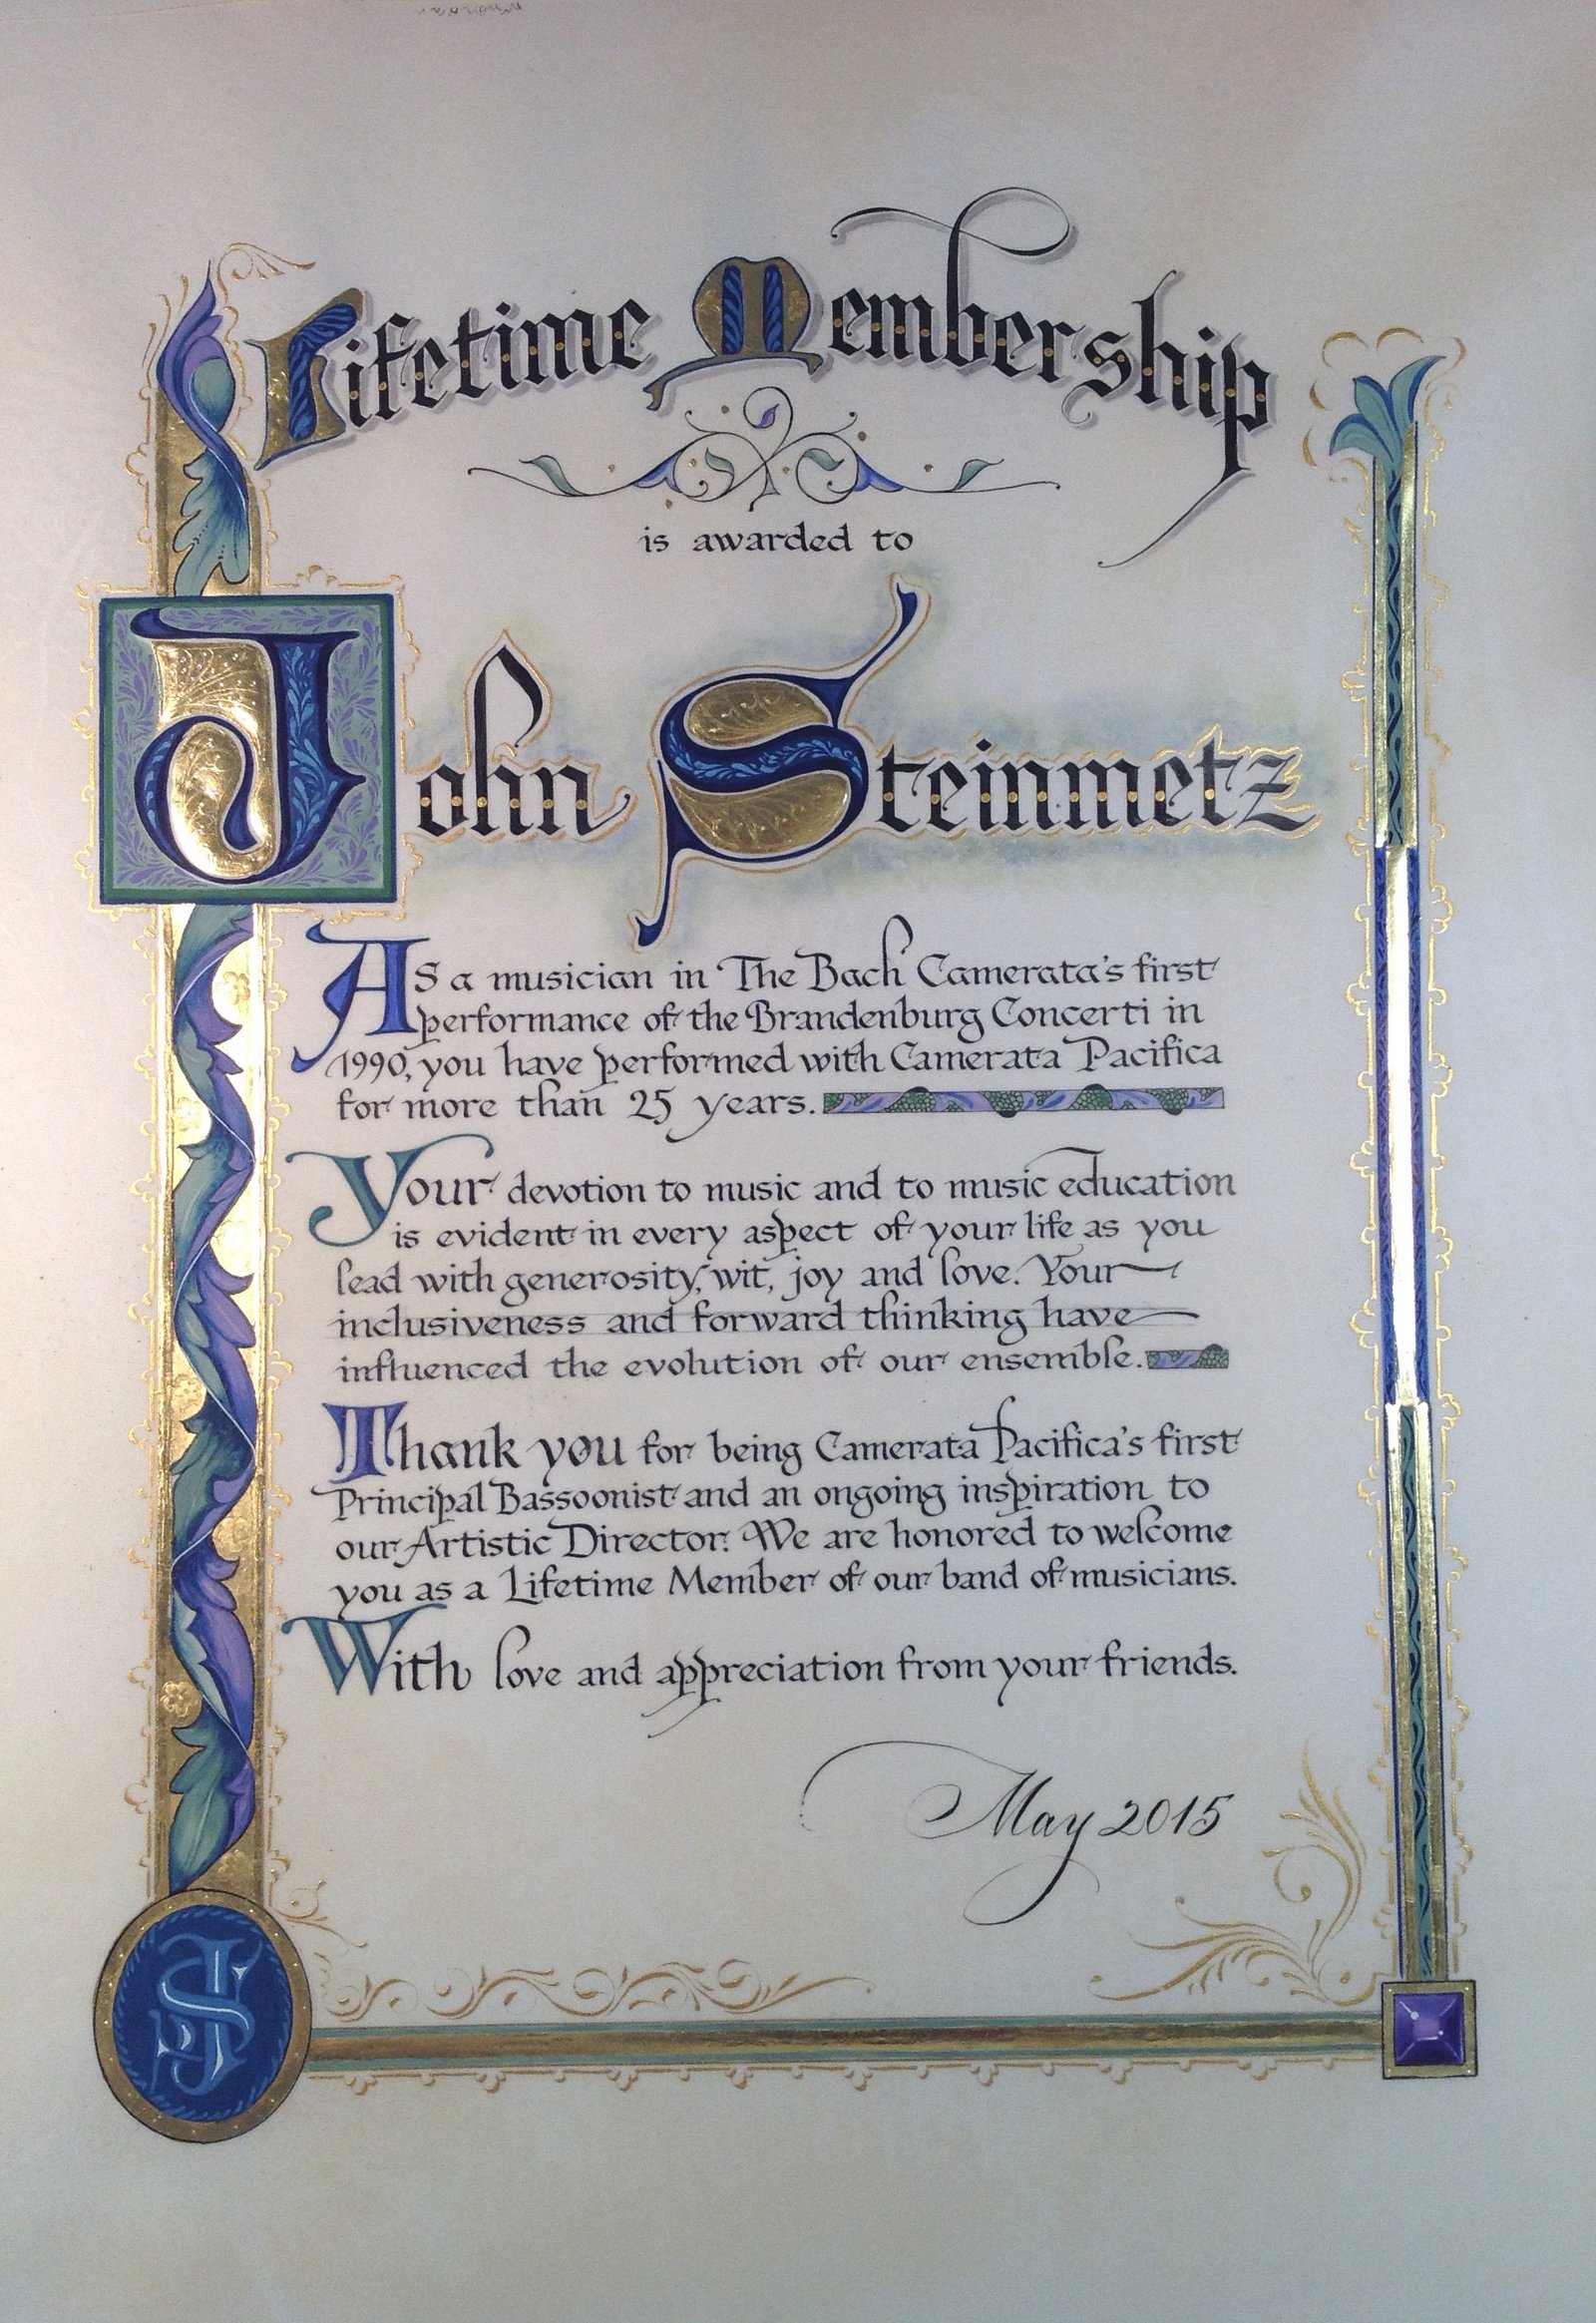 Lifetime Membership
is awarded to
John Steinmetz
As a musician in The Bach Camerata's first
performance of the Brandenburg Concerti in
1990, you have performed with Camerata Pacifica
for more than 25 years.
Your devotion to music and to music education
is evident in every aspect of your life as you
lead with generosity, wit, joy and love. Your
inclusiveness and forward thinking have
influenced the evolution of our ensemble.
Thank you for being Camerata Pacifica's first
Principal Bassoonist and an ongoing inspiration to
our Artistic Director. We are honored to welcome
you as a Lifetime Member of our band of musicians.
With love and appreciation from your friends.
May 2015
JS